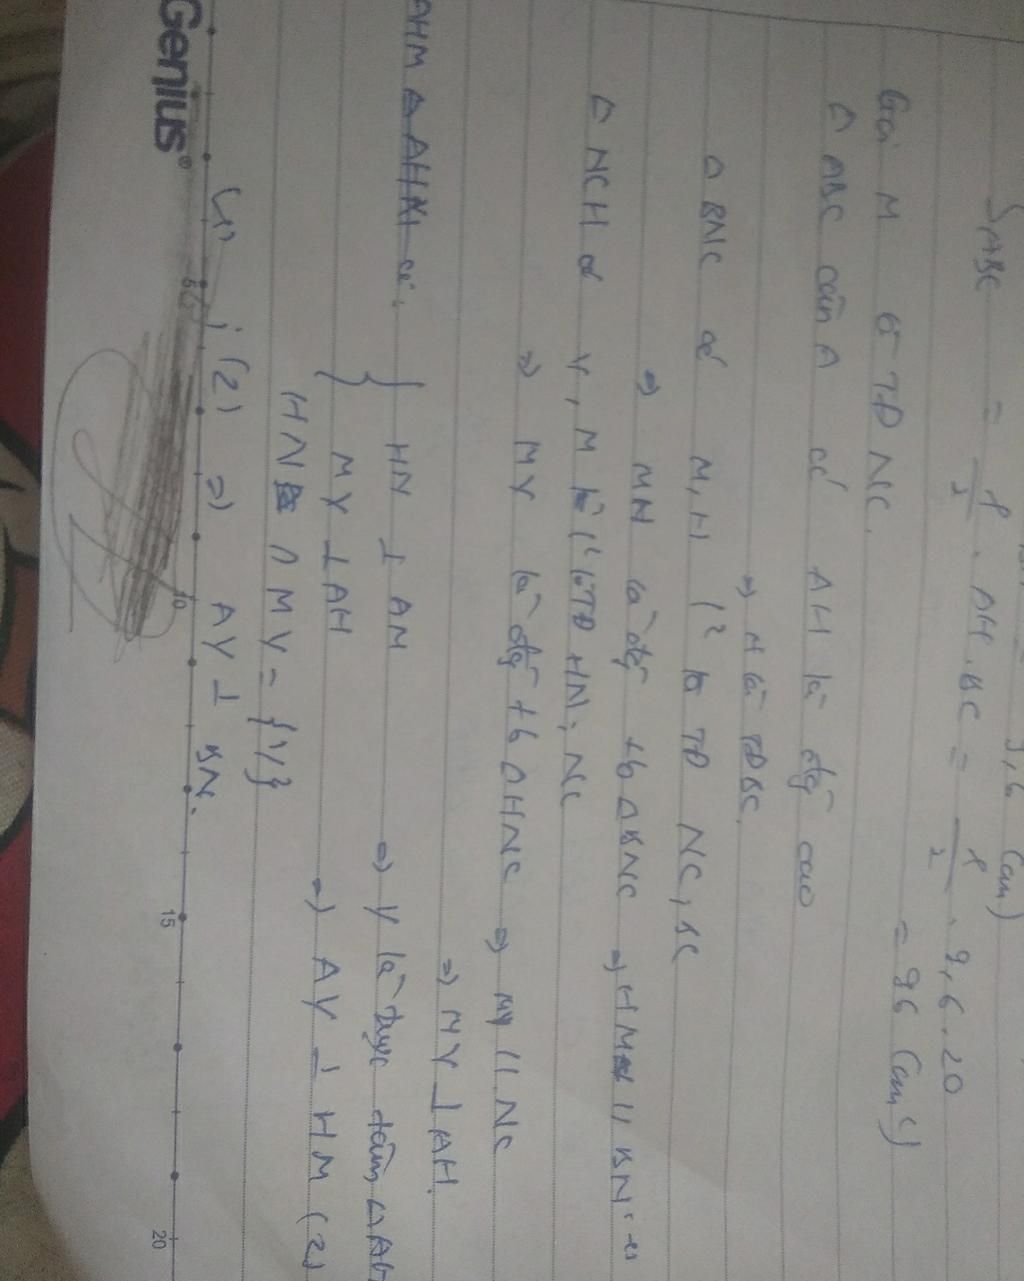 3,6 (cm)
S_ABC = 1/2 . AH . BC = 1/2 . 9,6 . 20
= 96 (cm²)
Gọi M là TĐ NC.
△ ABC cân A có AH là đg cao
=> H là TĐ BC.
△ BNC có M, H lần lượt là TĐ NC, BC
=> MH là đg tb △ BNC => HM // BN (1)
△ NCH có Y, M là TĐ HN; NC
=> MY là đg tb △ HNC => MY // NC
=> MY ⊥ AH.
AHM có: { HN ⊥ AM => Y là trực tâm
MY ⊥ AH => AY ⊥ HM (2)
HN ∩ MY = {Y}
(1) ; (2) => AY ⊥ BN.
Genius®
5
10
15
20